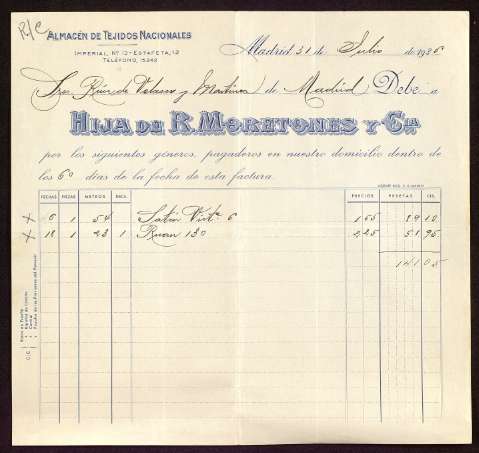 R/C
ALMACÉN DE TEJIDOS NACIONALES
IMPERIAL, Nº 10-ESTAFETA, 12
TELÉFONO, 15343
Madrid 31 de Julio de 1935
Sres Ruiz de Velasco y Martinez de Madrid Debe a
HIJA DE R. MORETONES Y Cía
por los siguientes géneros, pagaderos en nuestro domicilio dentro de
los 60 días de la fecha de esta factura.
FECHAS PIEZAS METROS DECS. PRECIOS PESETAS CTS.
X 6 1 54 Satén 6 1 65 89 10
X 18 1 23 1 Ruan 130 2,25 51 95
141 05